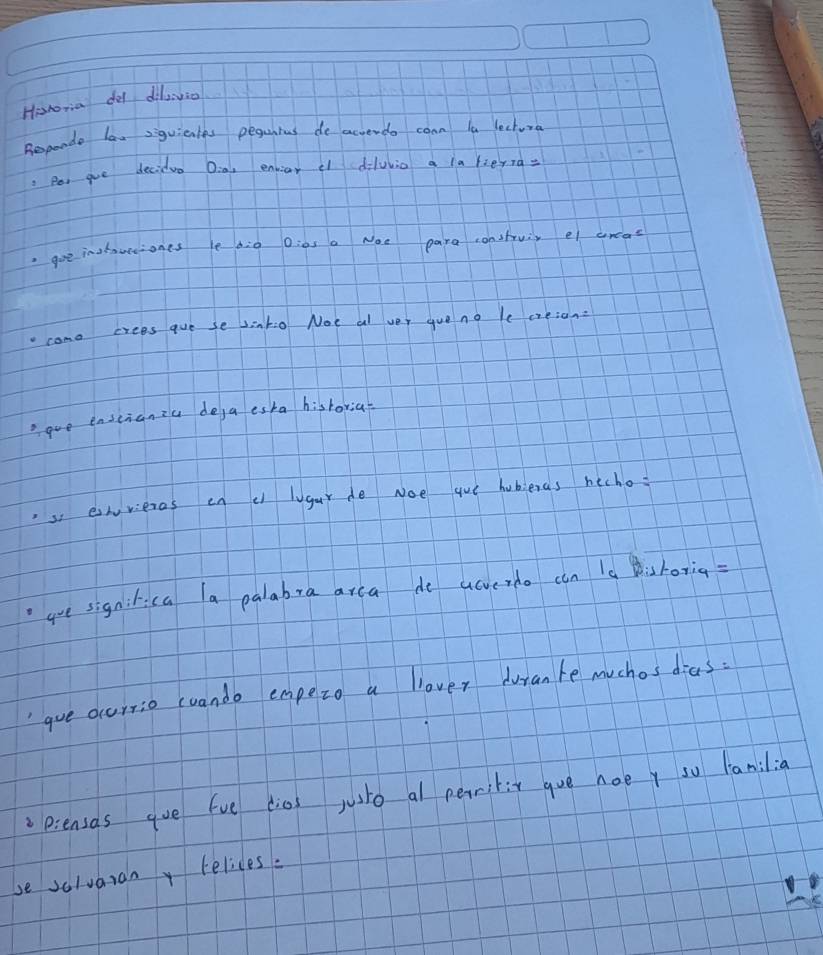 Historia del diluvio
Responde las siguientes peguntas de acuerdo conn la lectura
• Por que decidvo Dios enviar el diluvio a la tierra=
• que instrucciones le dio Dios a Noe para construir el arca=
• como crees que se sintio Noe al ver que no le creian=
• que enscianza deja esta historia=
• si estuvieras en el lugar de Noe que hubieras hecho=
• que significa la palabra arca de acuerdo con la historia=
• que ocurrio cuando empezo a llover durante muchos dias=
• Piensas que fue dios justo al permitir que noe y su familia
se salvaran y felices=